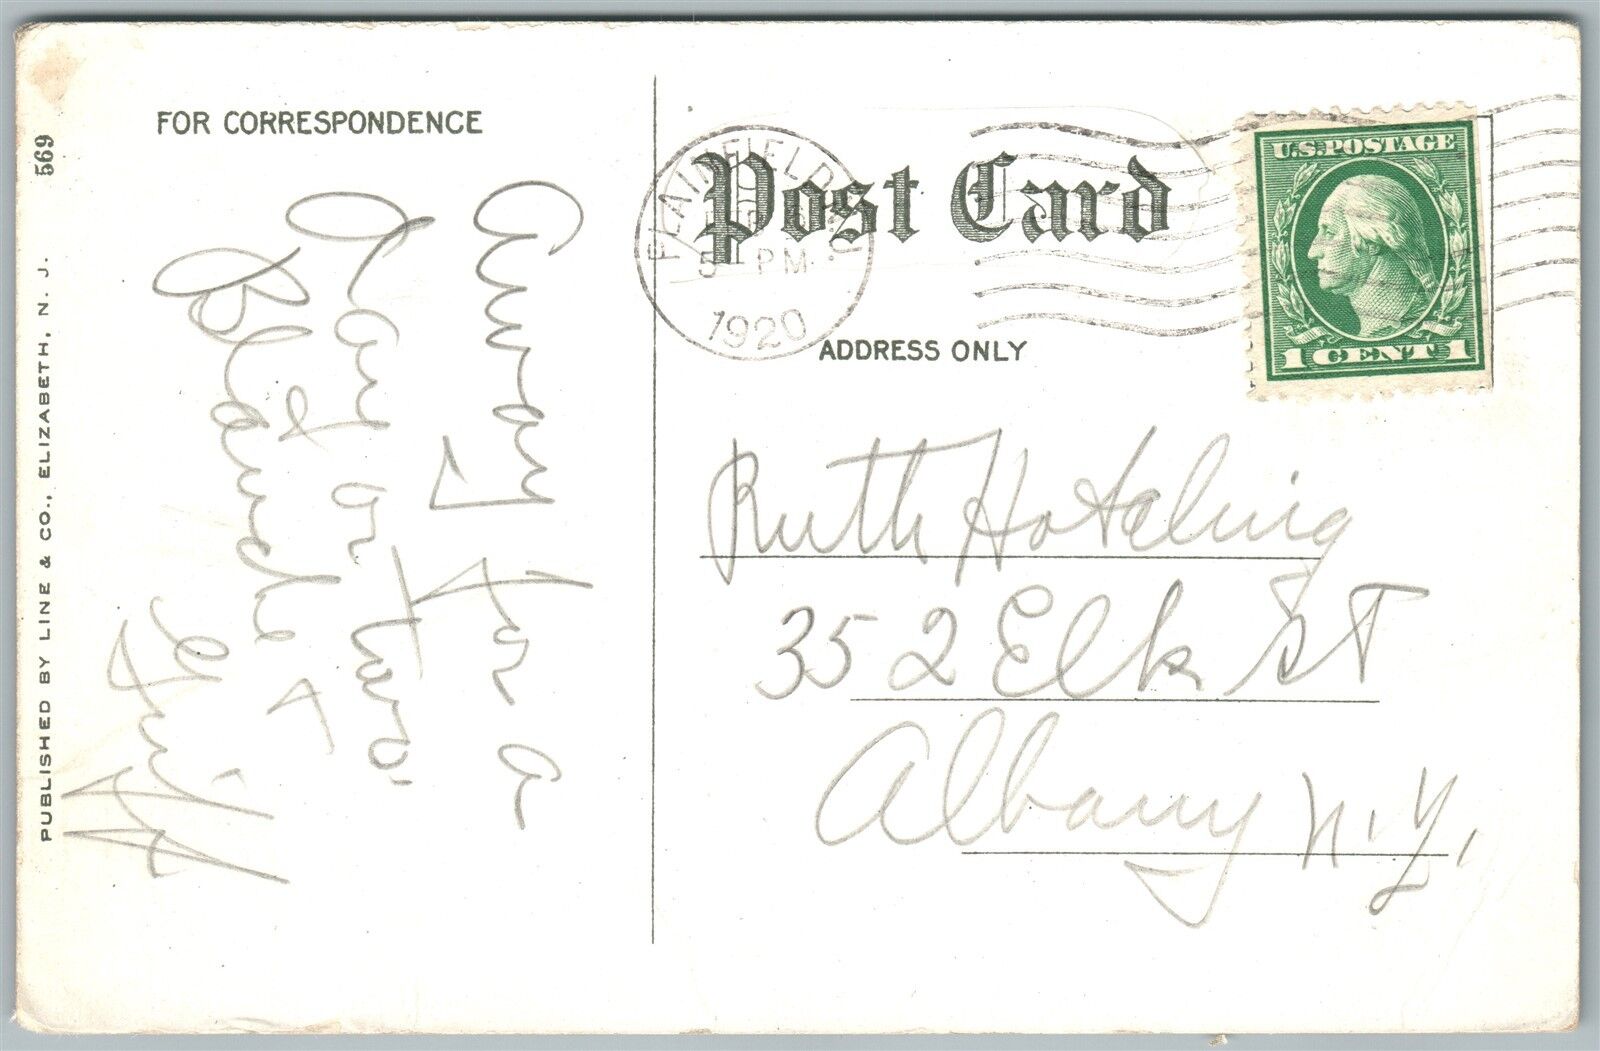 569
PUBLISHED BY LINE & CO., ELIZABETH, N. J.
FOR CORRESPONDENCE
Away for a
day or two.
Blanche +
Post Card
PLAINFIELD
5 PM
1920
U.S. POSTAGE
1 CENT 1
ADDRESS ONLY
Ruth Hotaling
352 Elk St
Albany N.Y.